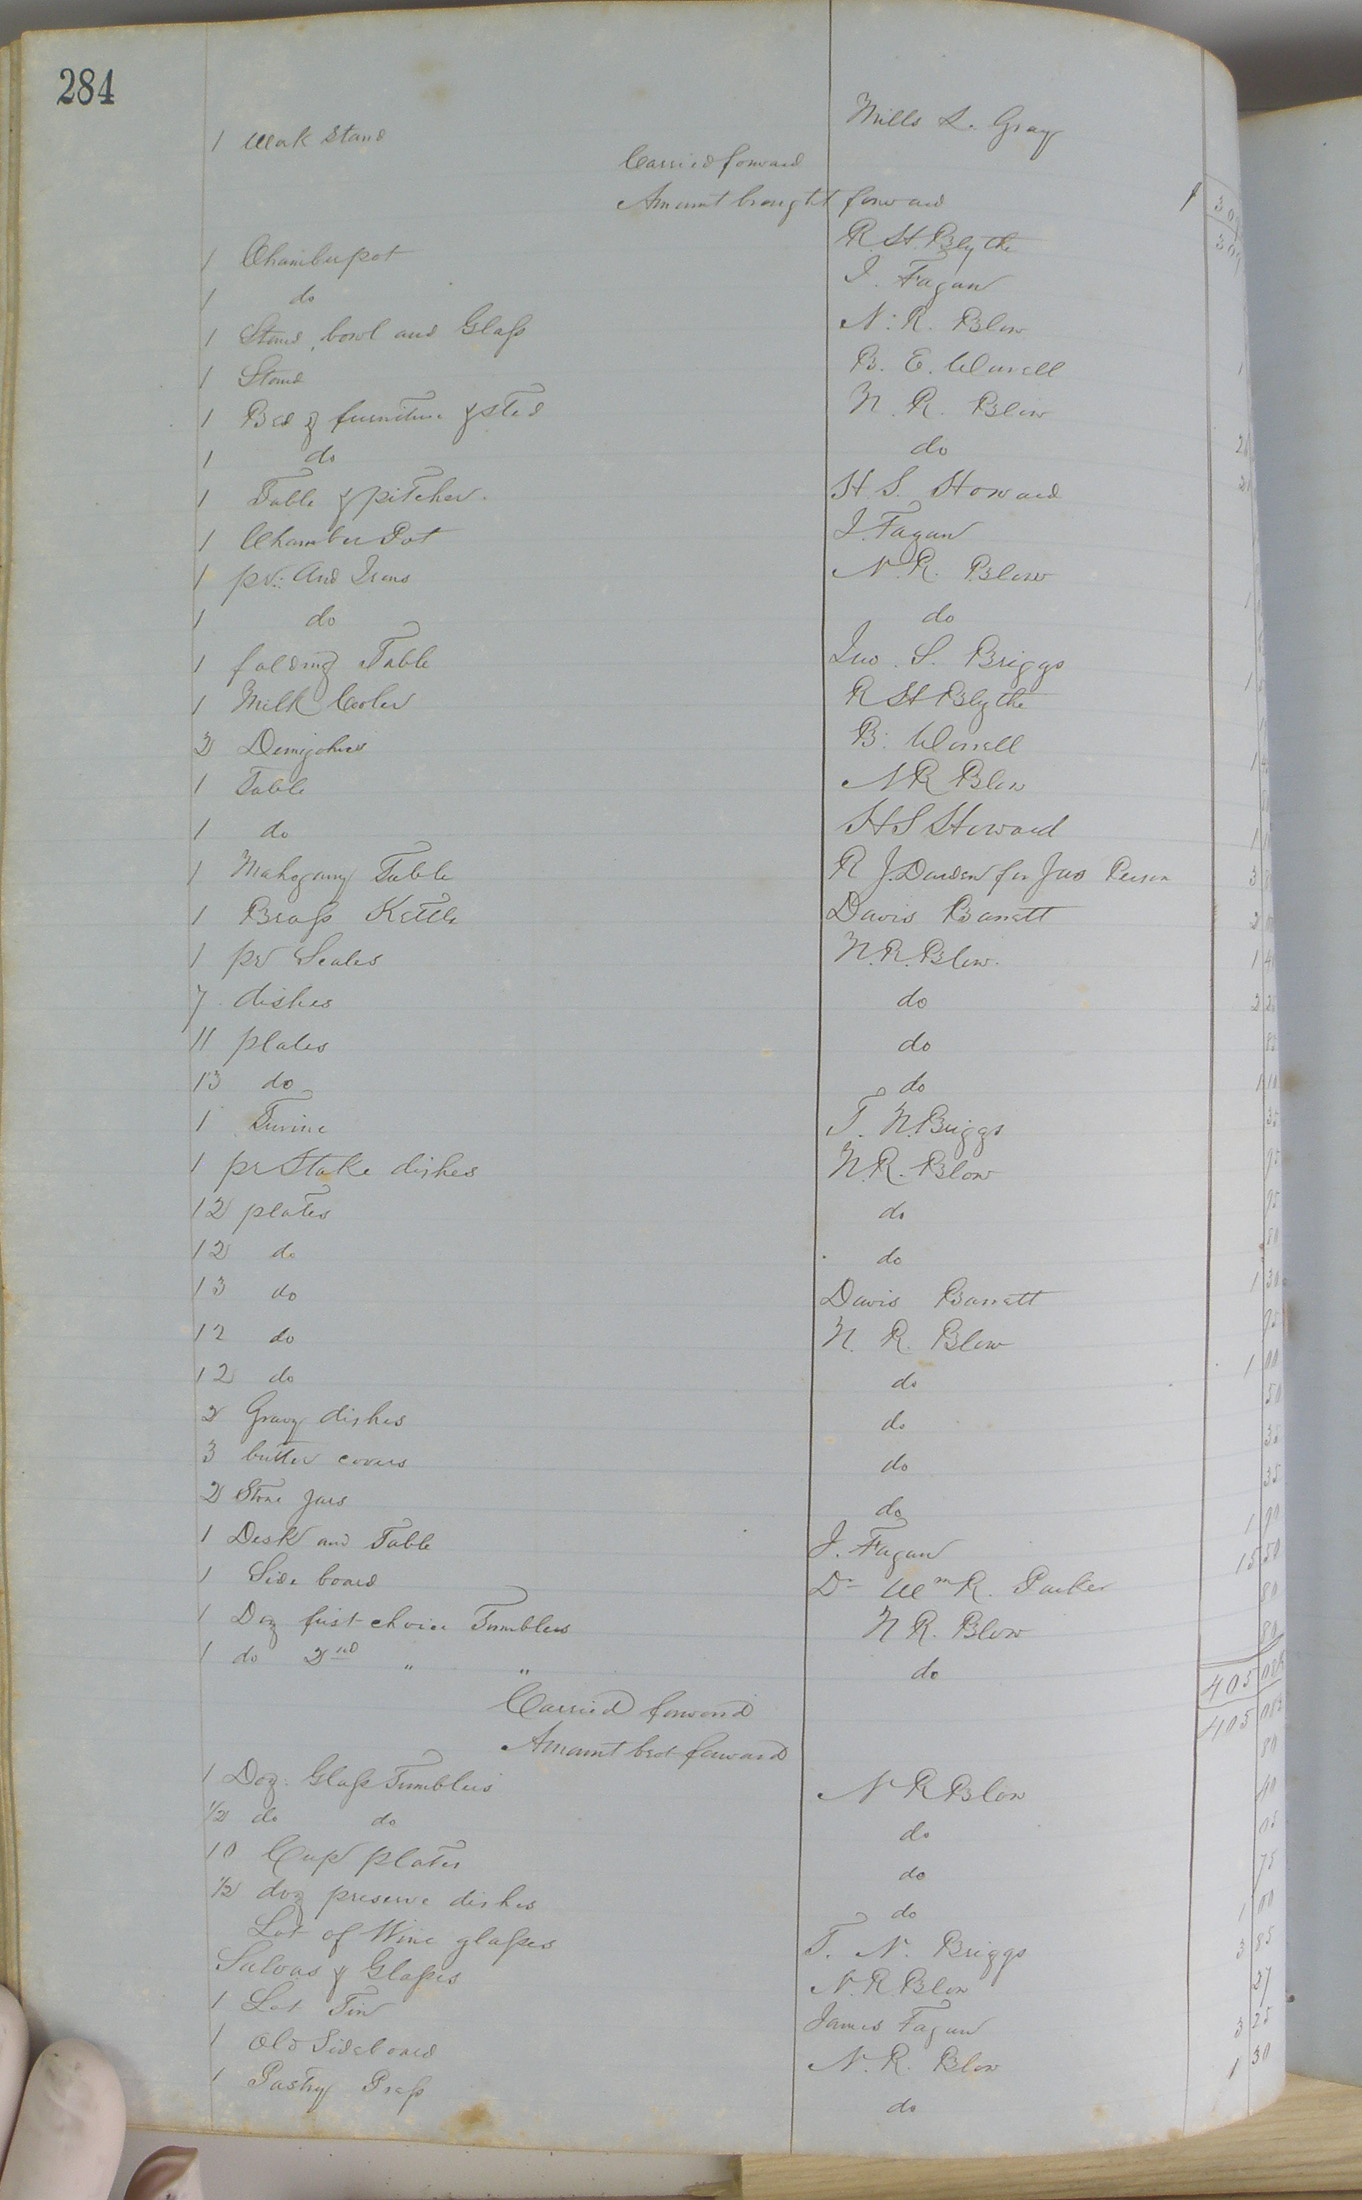 284
1 Wash Stand Mills L. Gray
Carried forward
Amount brought forward
1 Chamberpot R. H. Blythe
1 do J. Fagan
1 Stand, bowl and Glass N. R. Blow
1 Stand B. E. Worrell
1 Bed & furniture & sted N. R. Blow
1 do do
1 Table & pitcher. H. S. Howard
1 Chamber Pot J. Fagan
1 pr: And Irons N. R. Blow
1 do do
1 folding Table Jno. S. Briggs
1 Milk Cooler R H Blythe
2 Demijohns B: Worrell
1 Table N R Blow
1 do H S Howard
1 Mahogany Table R J. Darden for Jno 3
1 Brass Kettle Davis Barrett 2
1 pr Scales N. R. Blow. 1
7 dishes do 2
11 plates do
13 do do
1 Turine T. N. Briggs 35
1 pr Stake dishes N. R. Blow 95
12 plates do 95
12 do do 80
13 do Davis Barrett 1 30
12 do N. R. Blow 95
12 do do 1 00
2 Gravy dishes do 50
3 butter covers do 35
2 Stone Jars do 35
1 Desk and Table J. Fagan 1 90
1 Side board Dr Wm R. Parker 15 50
1 Doz first choice Tumblers N R. Blow 80
1 do 2nd " " do 80
Carried forward 405
Amount brot forward 405
1 Doz. Glass Tumblers N R Blow 80
1/2 do do do 40
10 Cup plates do 05
1/2 doz preserve dishes do 75
Lot of Wine glasses T. N. Briggs 1 00
& Glasses N. R. Blow 3 85
1 Lot Tin James Fagan 27
1 Old Sideboard N. R. Blow 3 25
1 Pastry Press do 1 30